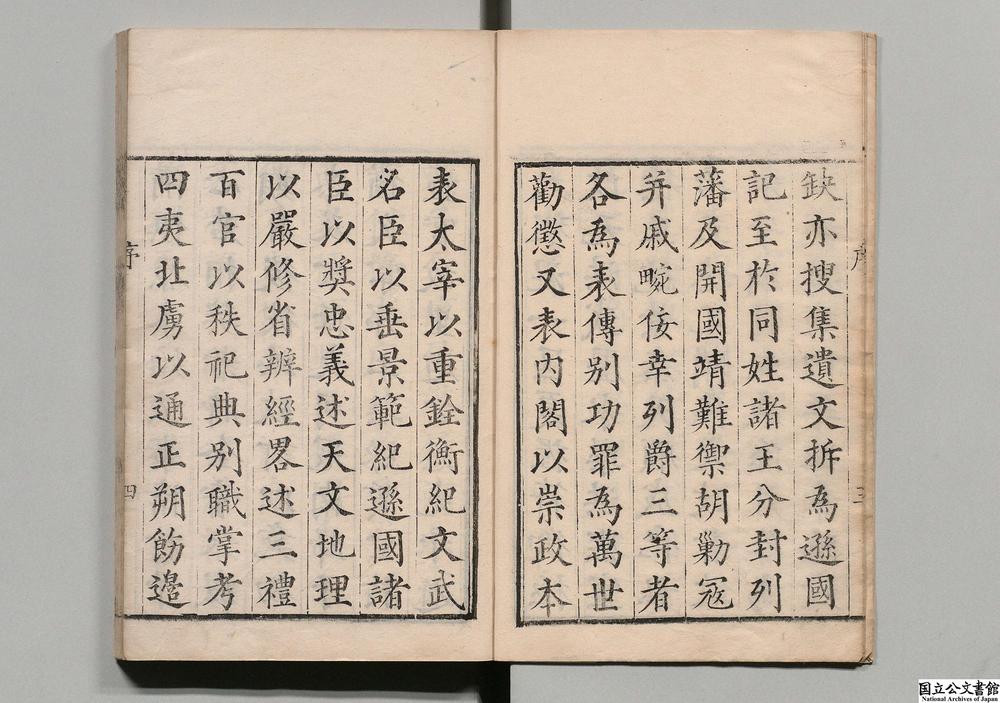 缺亦搜集遺文拆為遜國
記至於同姓諸王分封列
藩及開國靖難禦胡勦冦
并戚畹佞幸列爵三等者
各為表傳别功罪為萬世
勸懲又表内閣以崇政本
表太宰以重銓衡紀文武
名臣以垂景範紀遜國諸
臣以奬忠義述天文地理
以嚴修省辨經畧述三禮
百官以秩祀典别職掌考
四夷北虜以通正朔飭邊
序
四
序
三
国立公文書館
National Archives of Japan